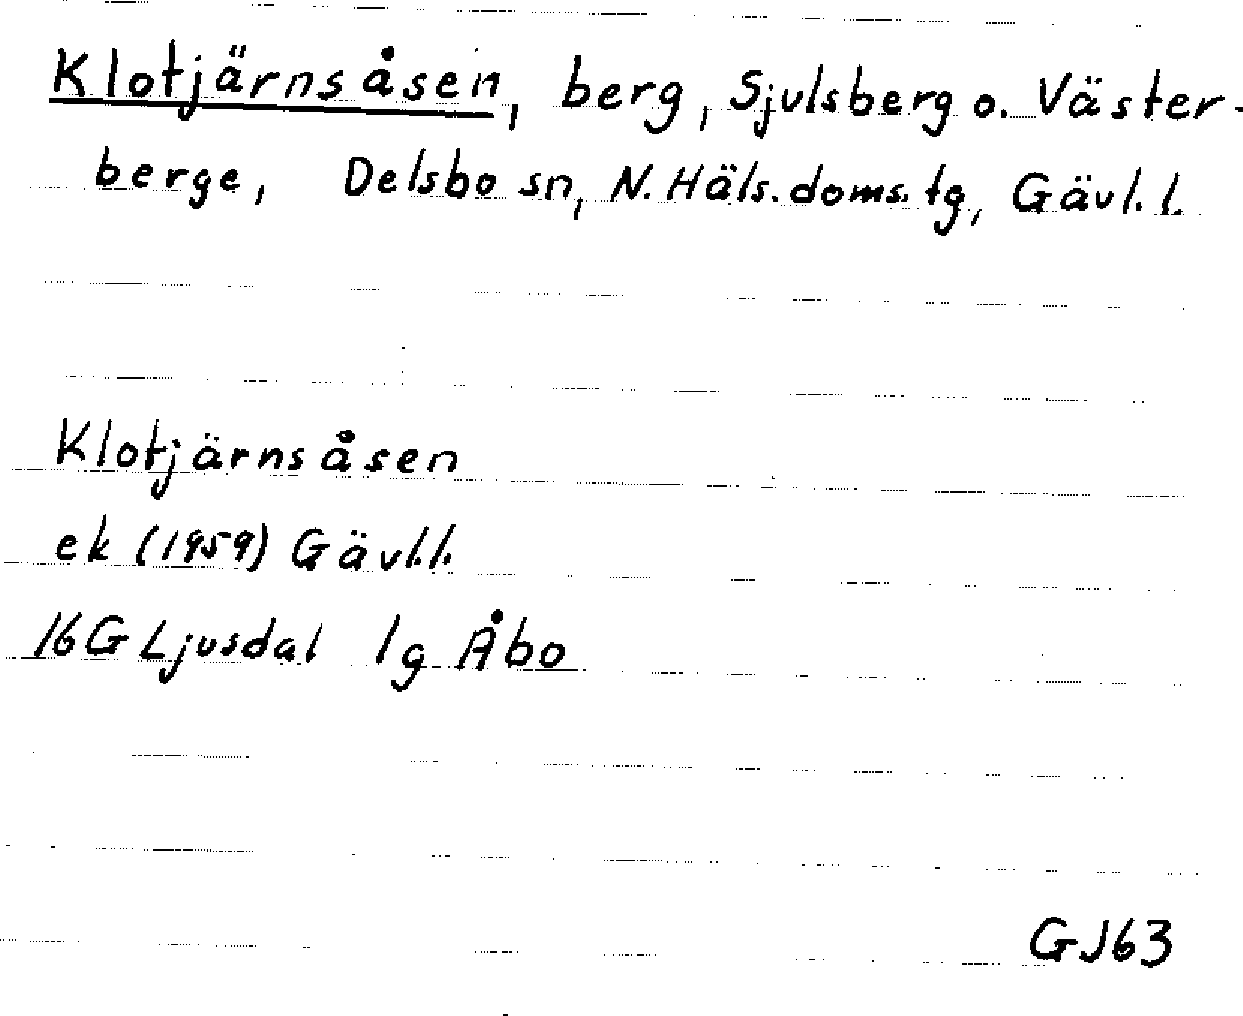 Klotjärnsåsen, berg, Sjulsberg o. Väster-
berge, Delsbo sn, N. Häls. doms. tg, Gävl. l.
Klotjärnsåsen
ek (1959) Gävl.l.
16G Ljusdal 1g Åbo
GJ63